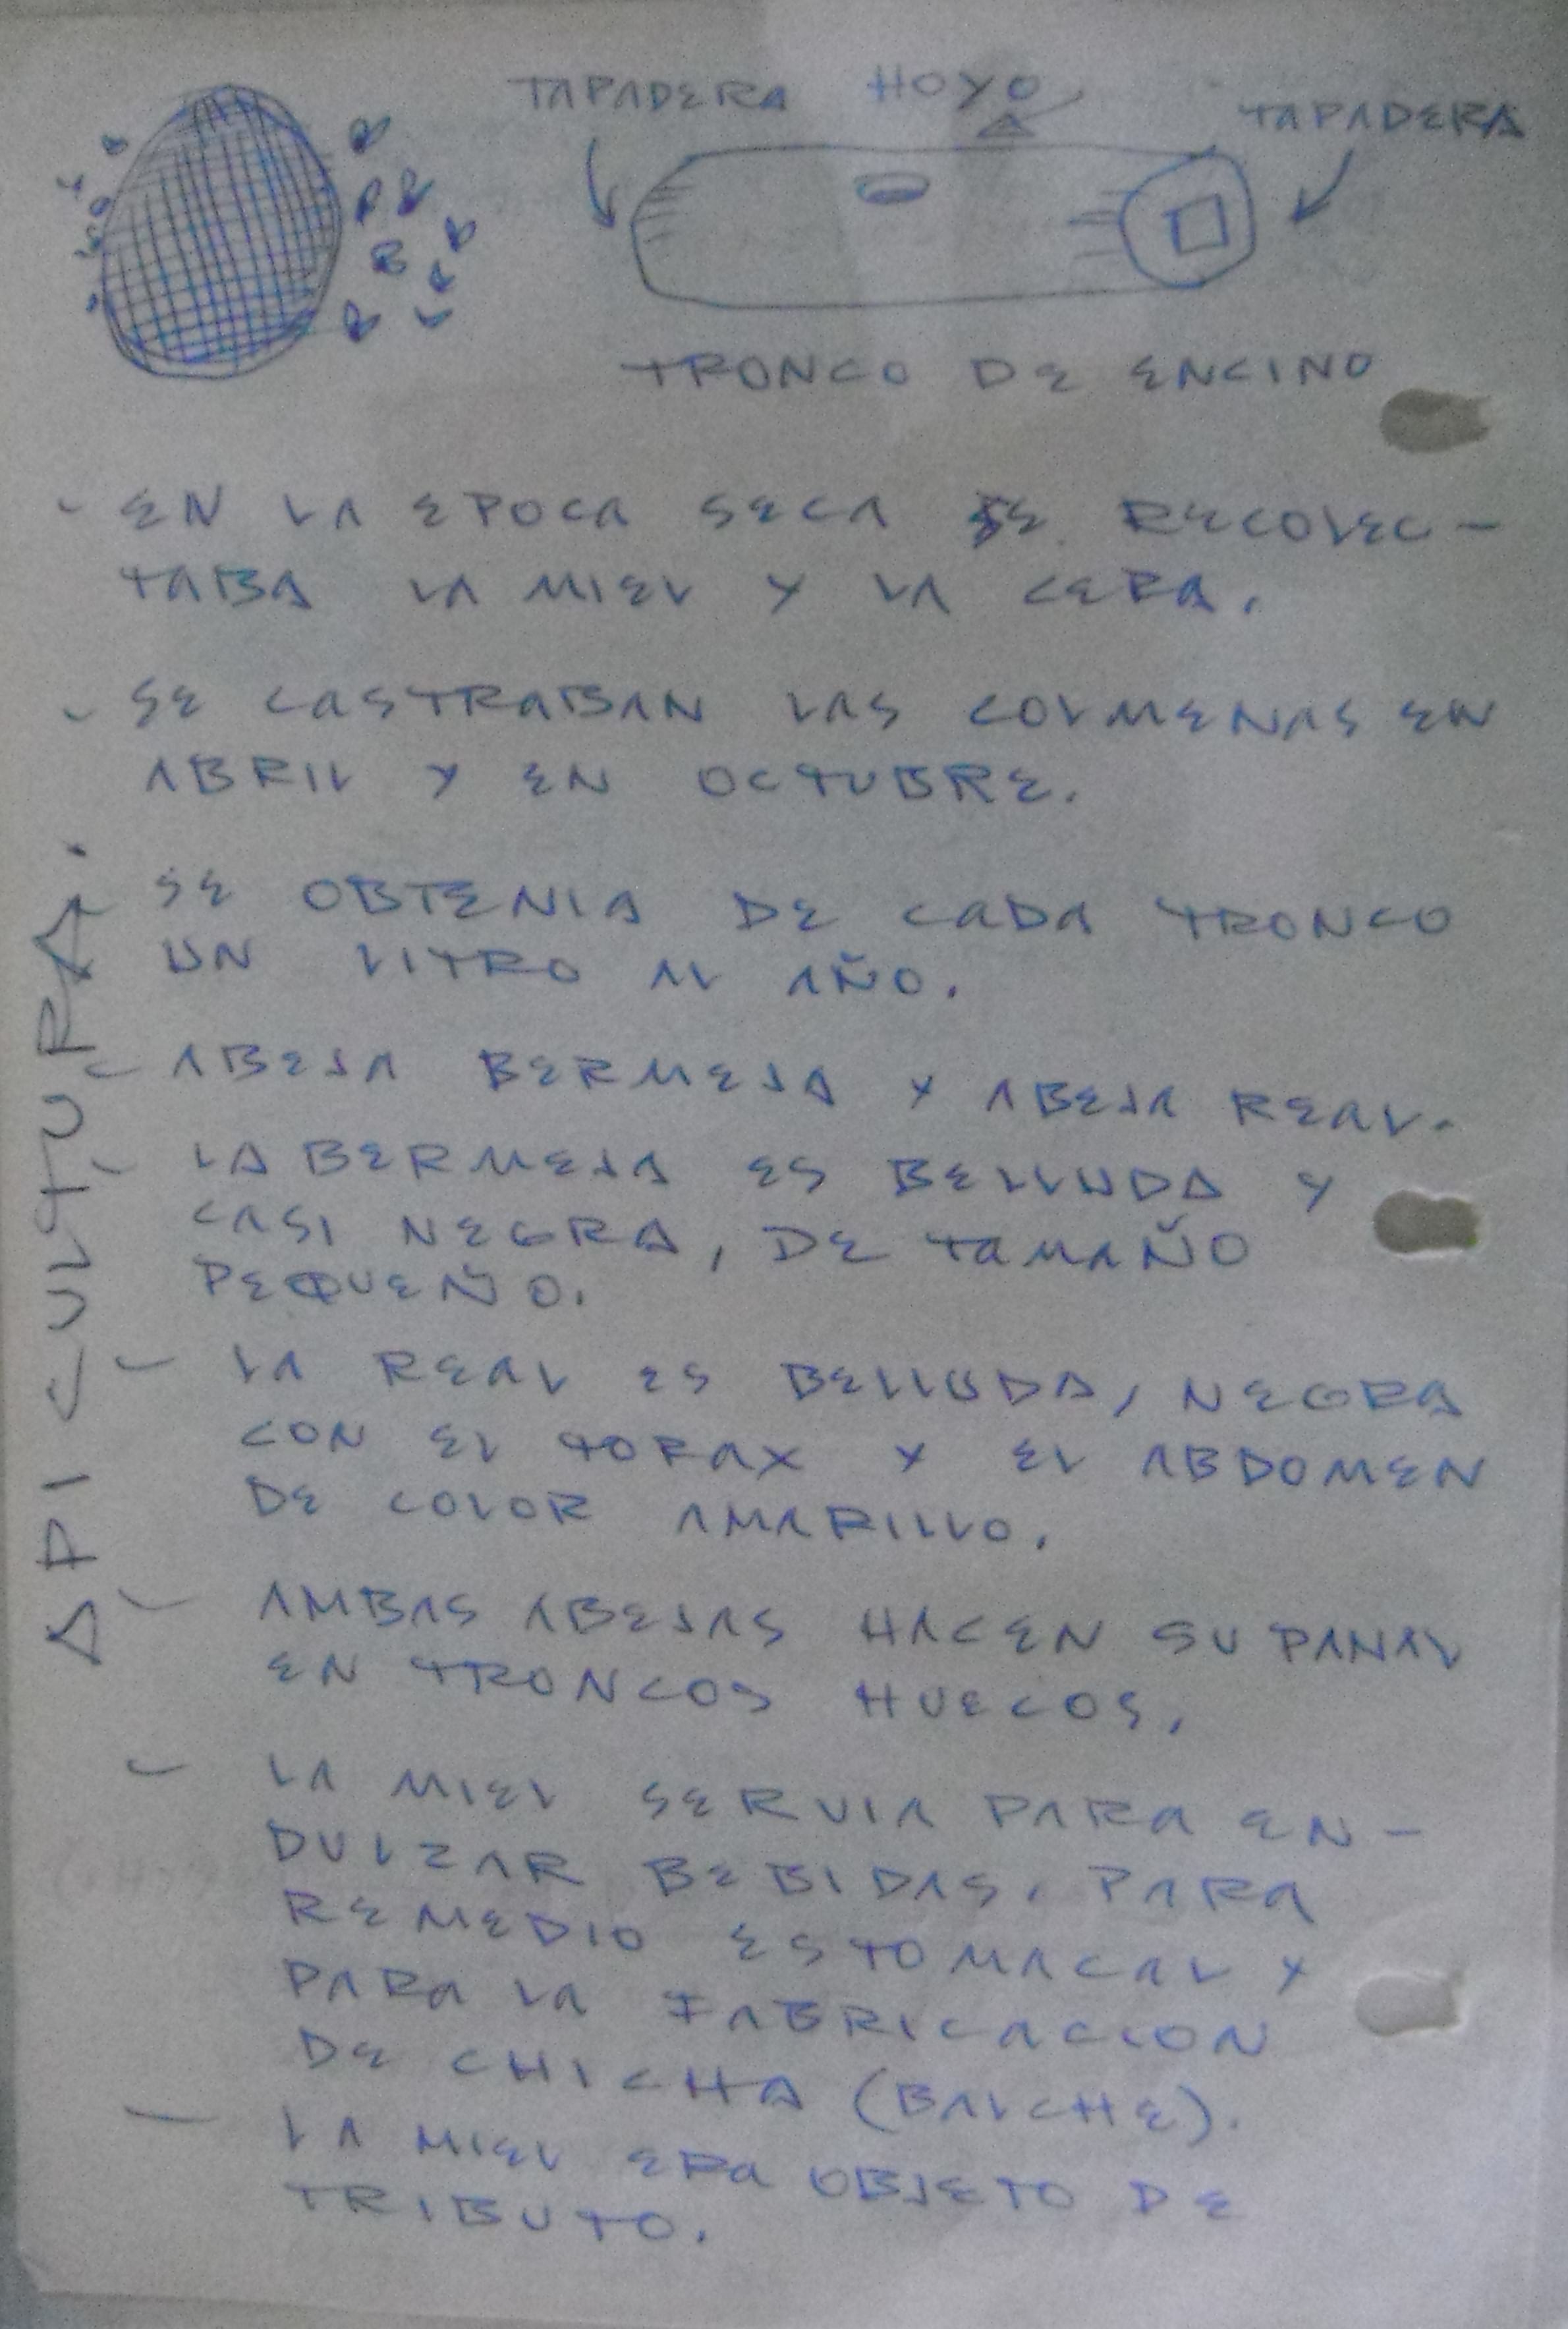 TAPADERA HOYO TAPADERA
TRONCO DE ENCINO
APICULTURA.
- EN LA EPOCA SECA SE RECOLEC-
TABA LA MIEL Y LA CERA.
- SE CASTRABAN LAS COLMENAS EN
ABRIL Y EN OCTUBRE.
SE OBTENIA DE CADA TRONCO
UN LITRO AL AÑO.
- ABEJA BERMEJA Y ABEJA REAL.
- LA BERMEJA ES BELLUDA Y
CASI NEGRA, DE TAMAÑO
PEQUEÑO.
- LA REAL ES BELLUDA, NEGRA
CON EL TORAX Y EL ABDOMEN
DE COLOR AMARILLO.
- AMBAS ABEJAS HACEN SU PANAL
EN TRONCOS HUECOS.
- LA MIEL SERVIA PARA EN-
DULZAR BEBIDAS, PARA
REMEDIO ESTOMACAL Y
PARA LA FABRICACION
DE CHICHA (BALCHE).
- LA MIEL ERA OBJETO DE
TRIBUTO.